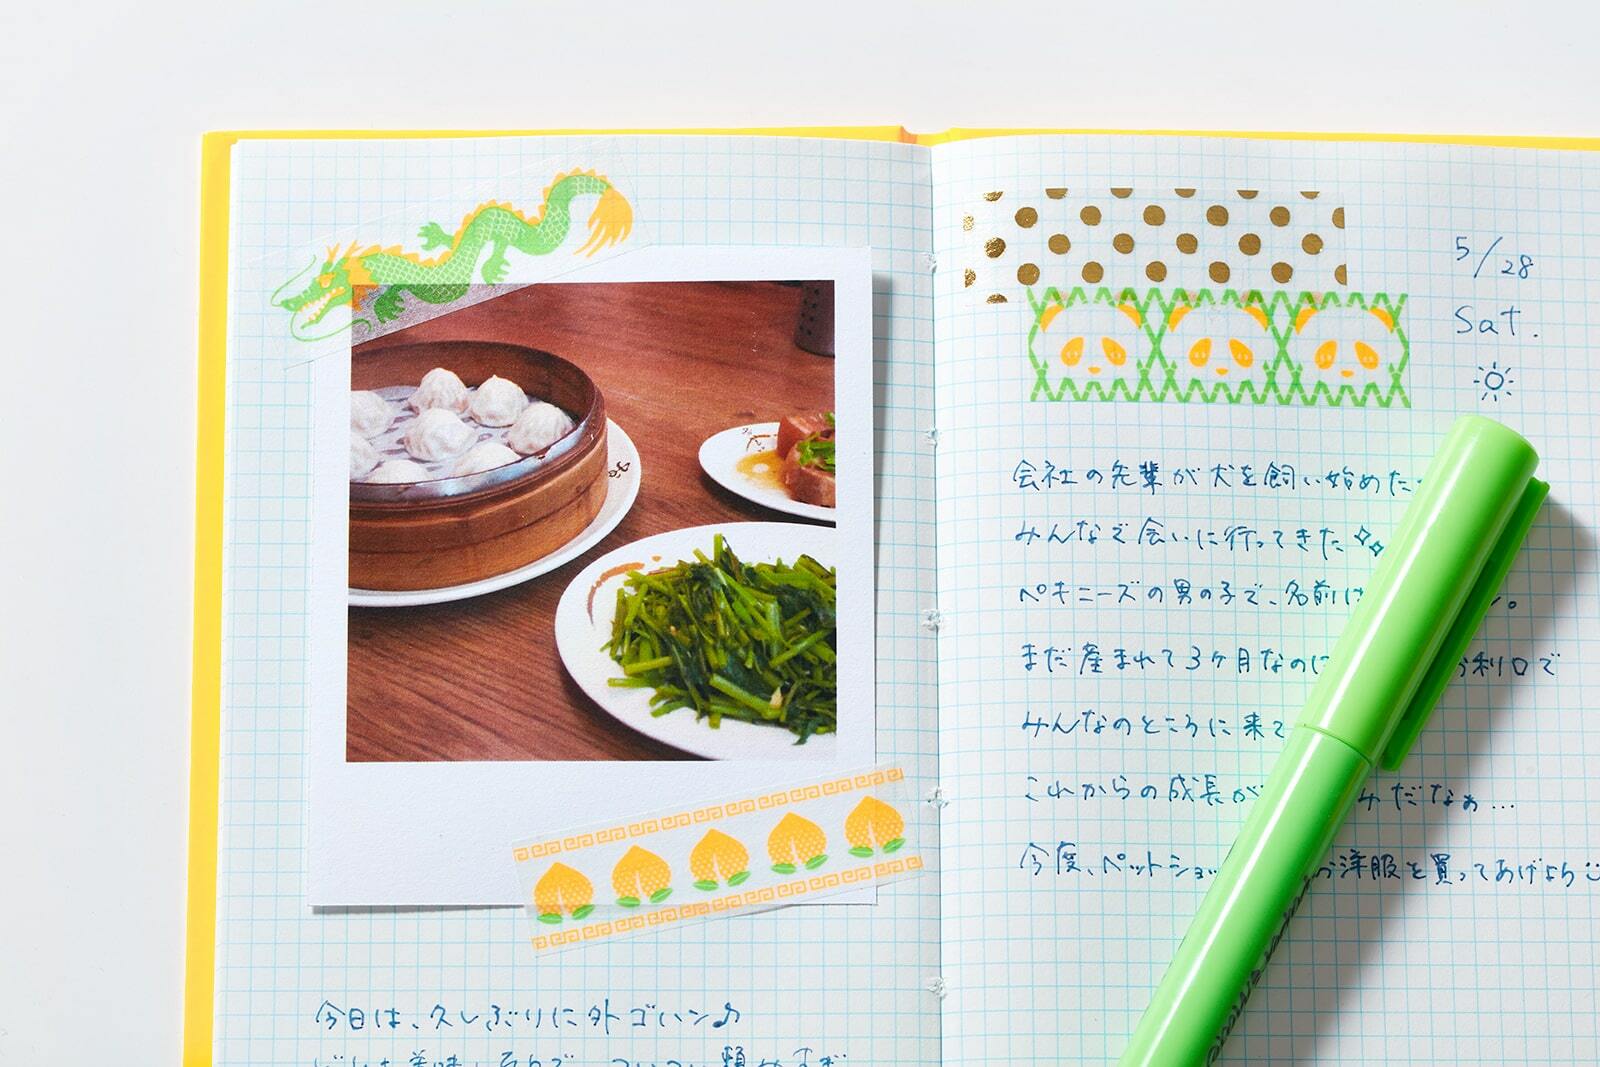 今日は、久しぶりに外ゴハン♪
どれも美味しそうで、ついつい頼みすぎ
5/28
Sat.
会社の先輩が犬を飼い始めた
みんなで会いに行ってきた
ペキニーズの男の子で、名前は ん。
まだ産まれて3ヶ月なのに お利口で
みんなのところに来て
これからの成長が みだなぁ…
今度、ペットショッ 洋服を買ってあげよう